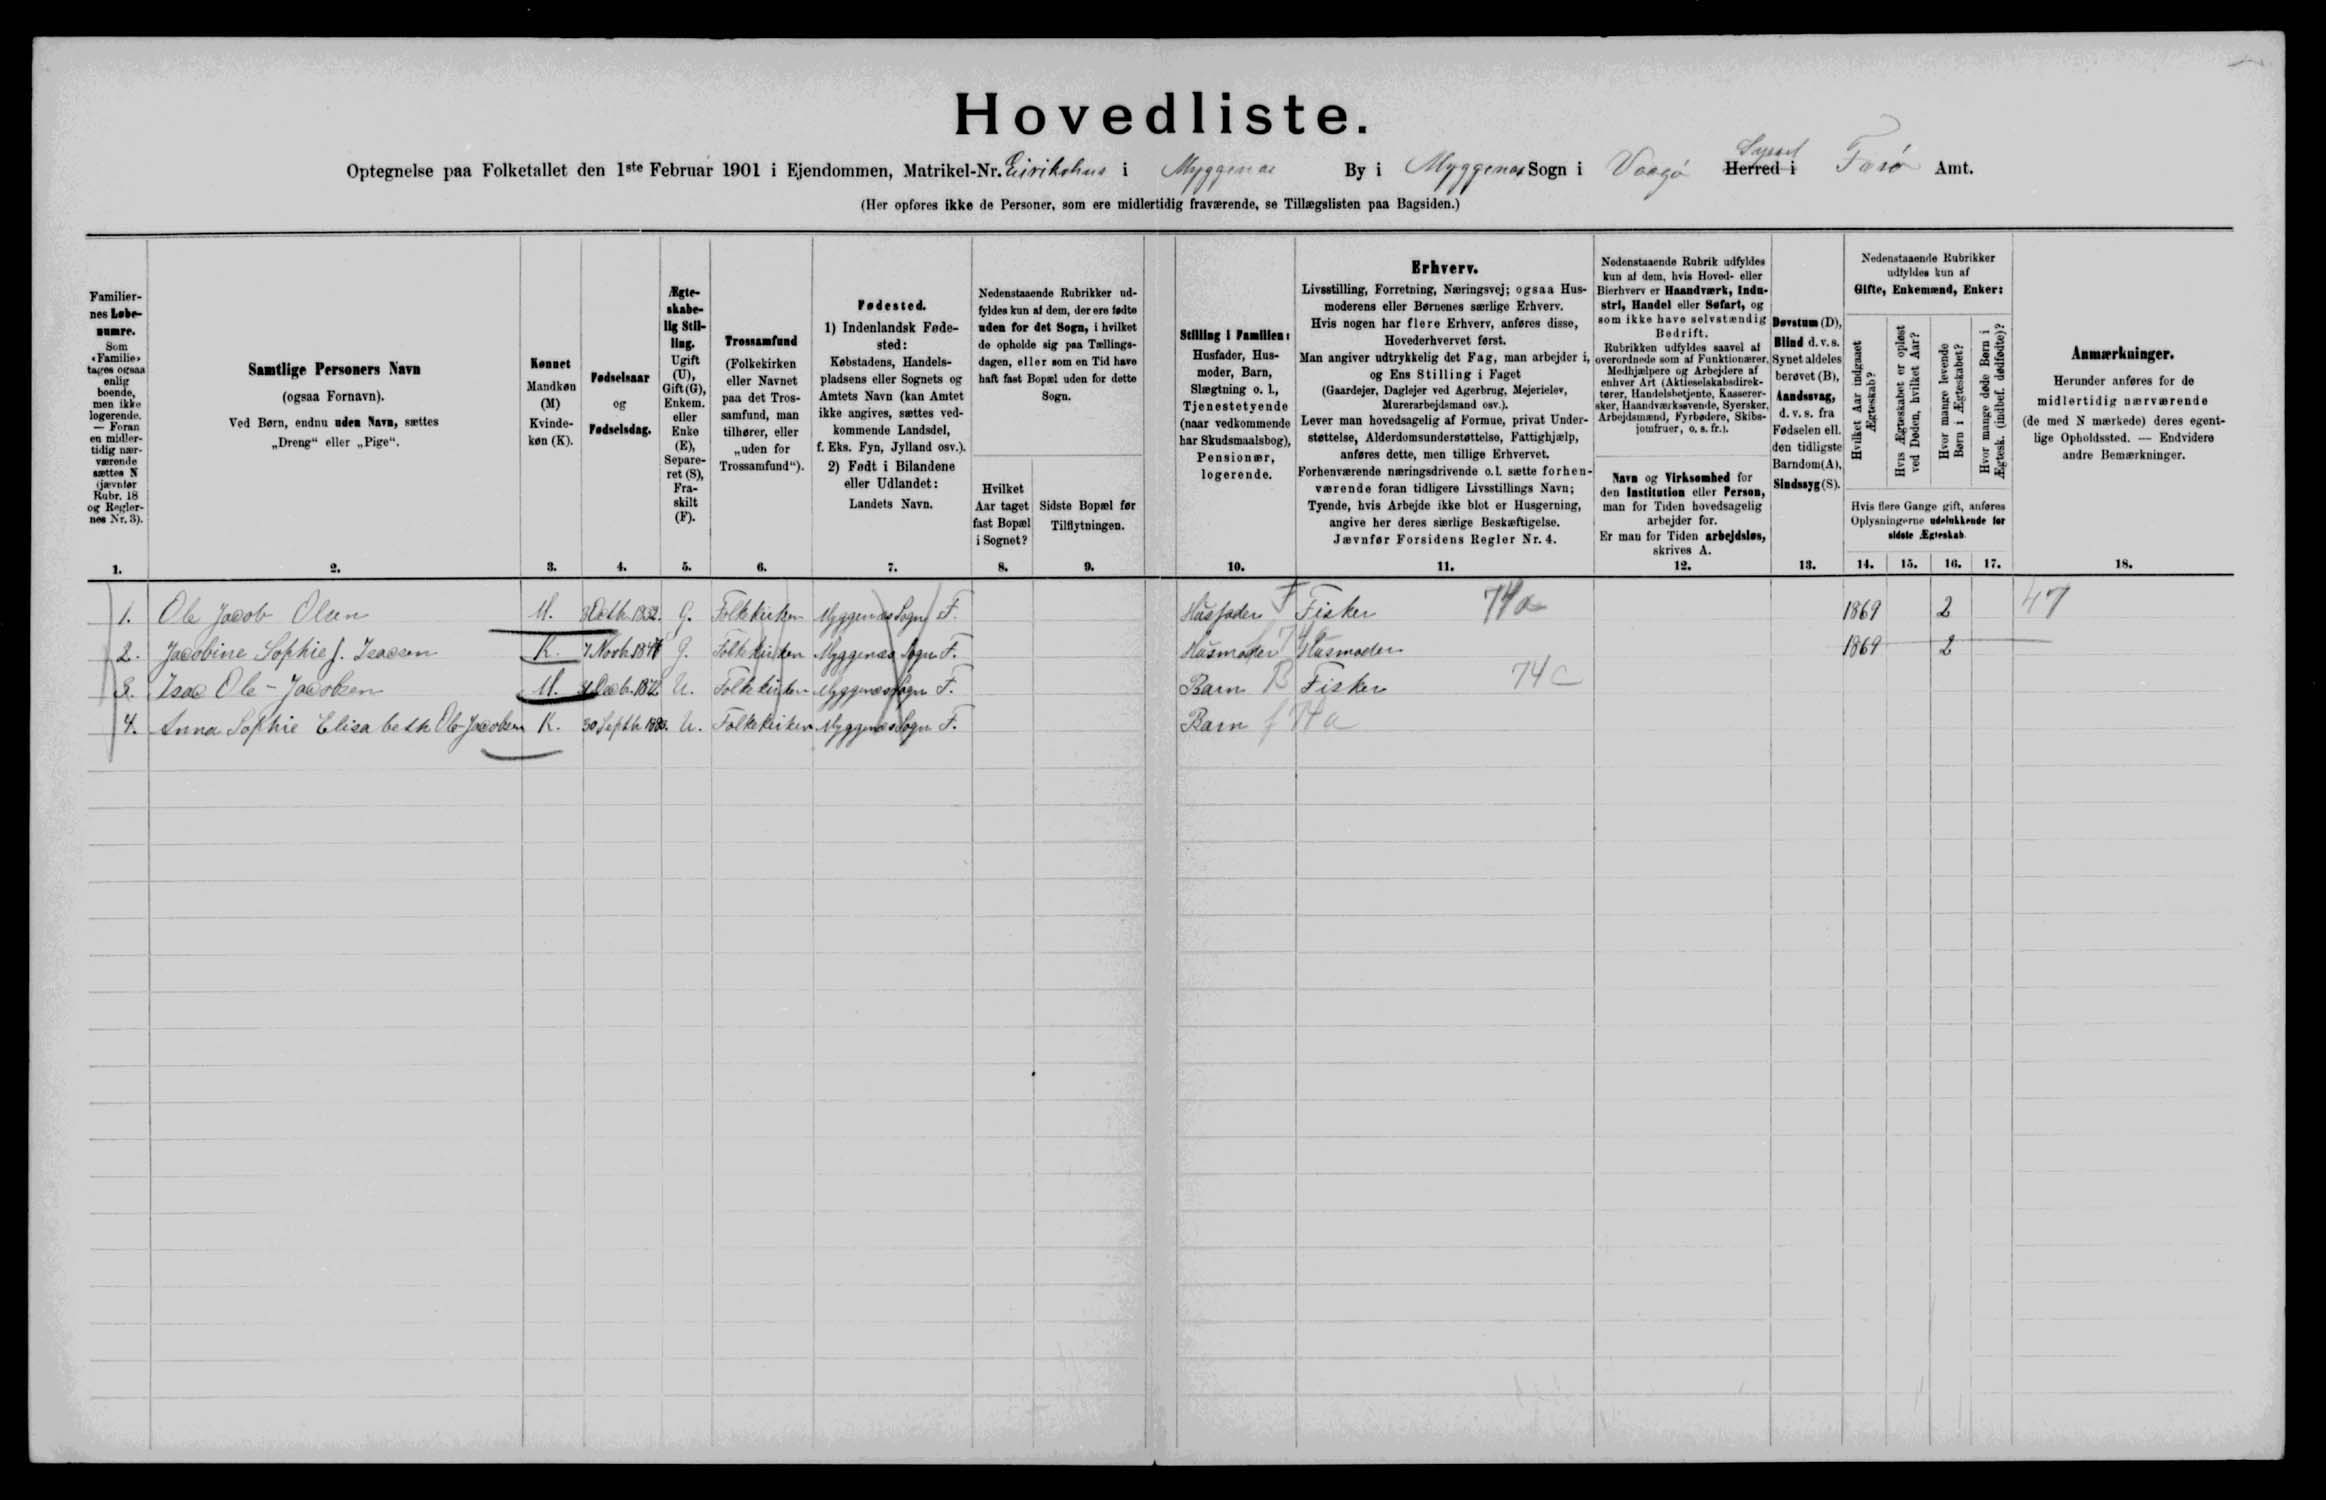 Hovedliste.
Optegnelse paa Folketallet den 1ste Februar 1901 i Ejendommen, Matrikel-Nr. Eirikshus i Myggenæs By i Myggenæs Sogn i Vaagø Herred i Syssel Færø Amt.
(Her opføres ikke de Personer, som ere midlertidig fraværende, se Tillægslisten paa Bagsiden.)
Familiernes Løbenumre.
Som «Familie» tages ogsaa enlig boende, men ikke logerende. — Foran en midlertidig nærværende sættes N (jævnfør Rubr. 18 og Reglernes Nr. 3).
1.
Samtlige Personers Navn
(ogsaa Fornavn).
Ved Børn, endnu uden Navn, sættes
„Dreng“ eller „Pige“.
2.
Kønnet
Mandkøn (M)
Kvindekøn (K).
3.
Fødselsaar
og
Fødselsdag.
4.
Ægteskabelig Stilling.
Ugift (U), Gift (G), Enkem. eller Enke (E), Separeret (S), Fraskilt (F).
5.
Trossamfund
(Folkekirken eller Navnet paa det Trossamfund, man tilhører, eller „uden for Trossamfund“).
6.
Fødested.
1) Indenlandsk Fødested:
Købstadens, Handelspladsens eller Sognets og Amtets Navn (kan Amtet ikke angives, sættes vedkommende Landsdel, f. Eks. Fyn, Jylland osv.).
2) Født i Bilandene eller Udlandet:
Landets Navn.
7.
Nedenstaaende Rubrikker udfyldes kun af dem, der ere fødte uden for det Sogn, i hvilket de opholde sig paa Tællingsdagen, eller som en Tid have haft fast Bopæl uden for dette Sogn.
Hvilket Aar taget fast Bopæl i Sognet?
8.
Sidste Bopæl før Tilflytningen.
9.
Stilling i Familien:
Husfader, Husmoder, Barn, Slægtning o. l., Tjenestetyende (naar vedkommende har Skudsmaalsbog), Pensionær, logerende.
10.
Erhverv.
Livsstilling, Forretning, Næringsvej; ogsaa Husmoderens eller Børnenes særlige Erhverv.
Hvis nogen har flere Erhverv, anføres disse, Hovederhvervet først.
Man angiver udtrykkelig det Fag, man arbejder i, og Ens Stilling i Faget
(Gaardejer, Daglejer ved Agerbrug, Mejerielev, Murerarbejdsmand osv.).
Lever man hovedsagelig af Formue, privat Understøttelse, Alderdomsunderstøttelse, Fattighjælp, anføres dette, men tillige Erhvervet.
Forhenværende næringsdrivende o. l. sætte forhenværende foran tidligere Livsstillings Navn; Tyende, hvis Arbejde ikke blot er Husgerning, angive her deres særlige Beskæftigelse.
Jævnfør Forsidens Regler Nr. 4.
11.
Nedenstaaende Rubrik udfyldes kun af dem, hvis Hoved- eller Bierhverv er Haandværk, Industri, Handel eller Søfart, og som ikke have selvstændig Bedrift.
Rubrikken udfyldes saavel af overordnede som af Funktionærer, Medhjælpere og Arbejdere af enhver Art (Aktieselskabsdirektører, Handelsbetjente, Kasserersker, Haandværkssvende, Syersker, Arbejdsmænd, Fyrbødere, Skibsjomfruer, o. s. fr.).
Navn og Virksomhed for den Institution eller Person, man for Tiden hovedsagelig arbejder for.
Er man for Tiden arbejdsløs, skrives A.
12.
Døvstum (D), Blind d. v. s. Synet aldeles berøvet (B), Aandssvag, d. v. s. fra Fødselen ell. den tidligste Barndom (A), Sindssyg (S).
13.
Nedenstaaende Rubrikker udfyldes kun af
Gifte, Enkemænd, Enker:
Hvilket Aar indgaaet Ægteskab?
Hvis Ægteskabet er opløst ved Døden, hvilket Aar?
Hvor mange levende Børn i Ægteskabet?
Hvor mange døde Børn i Ægtesk. (indbef. dødfødte)?
Hvis flere Gange gift, anføres Oplysningerne udelukkende for sidste Ægteskab.
14. 15. 16. 17.
Anmærkninger.
Herunder anføres for de midlertidig nærværende (de med N mærkede) deres egentlige Opholdssted. — Endvidere andre Bemærkninger.
18.
1. Ole Jacob Olsen M. 1832. G. Folkekirken Myggenæs Sogn F. Husfader F Fisker 74a 1869 2 47
2. Jacobine Sophie f. Isacsen K. 7 Novb. G. Folkekirken Myggenæs Sogn F. Husmoder Husmoder 1869 2
3. Isac Ole-Jacobsen M. U. Folkekirken Myggenæs Sogn F. Barn B Fisker 74c
4. Anna Sophie Elisabeth Ole-Jacobsen K. 30 Septb. U. Folkekirken Myggenæs Sogn F. Barn f 74a